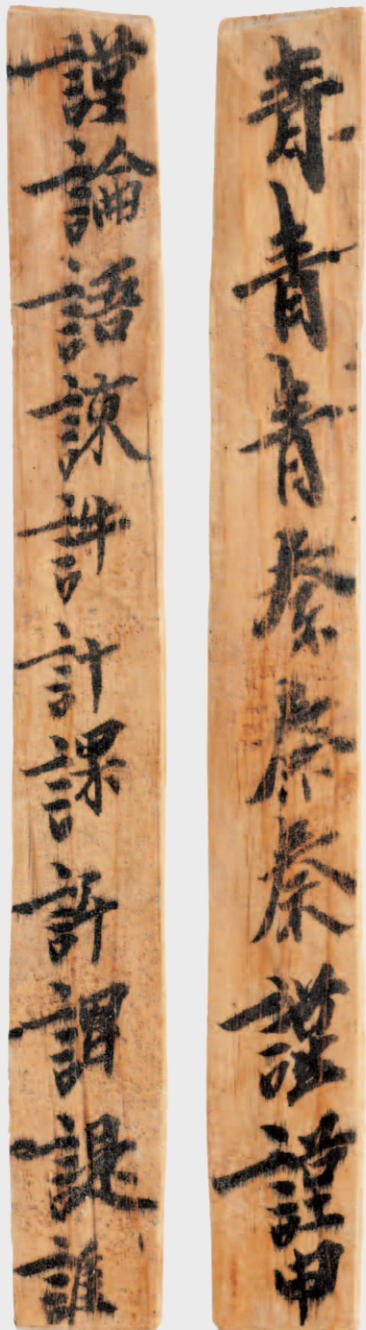 青青青秦秦秦謹謹申
謹論語諫許計課許謂諟誰